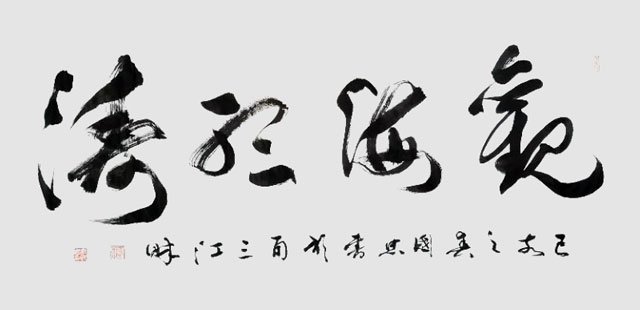 觀海聽濤
己亥之國書於甬三江畔